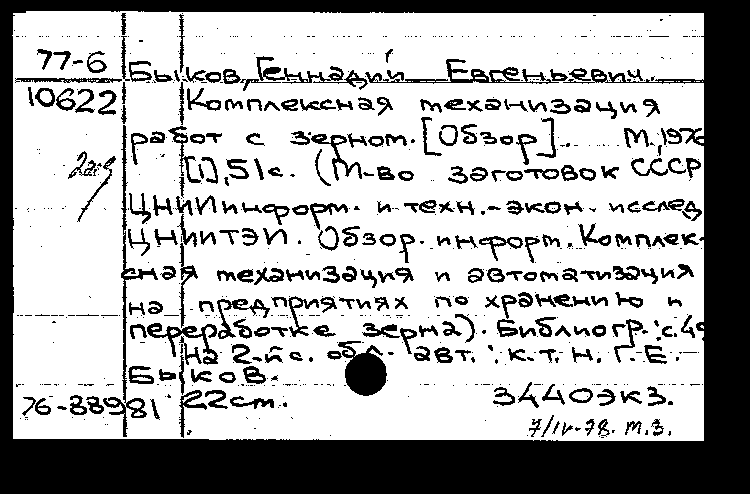 77-6 Быков, Геннадий Евгеньевич.
10622 Комплексная механизация
работ с зерном. [Обзор]. М., 1976
[1], 51 с. (М-во заготовок СССР
ЦНИИинформ. и техн.-экон. исслед
ЦНИИТЭИ. Обзор. информ. Комплек-
сная механизация и автоматизация
на предприятиях по хранению и
переработке зерна). Библиогр.: с. 49
На 2-й с. обл. авт.: к.т.н. Г.Е.
Быков.
76-88981 22 см. 3440 экз.
7/IV-78. м.з.